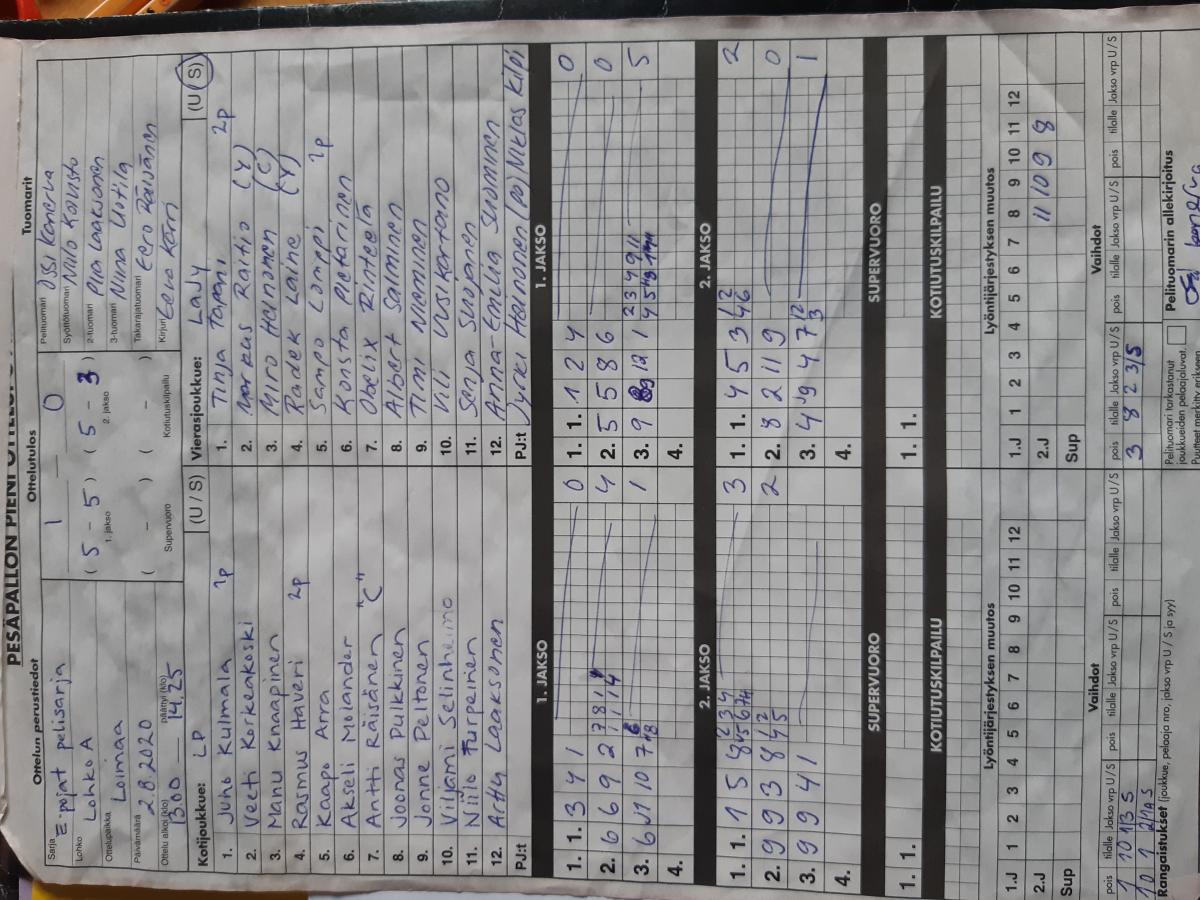 PESÄPALLON PIENI OTTELUP
Ottelun perustiedot
Ottelutulos
Tuomarit
Sarja E-pojat pelisarja
Lohko Lohko A
Ottelupaikka Loimaa
Päivämäärä 2.8.2020
Ottelu alkoi (klo) 13.00 päättyi (klo) 14.25
1 - 0
( 5 - 5 ) ( 5 - 3 )
1. jakso 2. jakso
( - ) ( - )
Supervuoro Kotiutuskilpailu
Pelituomari Ossi Konerva
Syöttötuomari Niilo Koivisto
2-tuomari Piia Laaksonen
3-tuomari Niina Uotila
Takarajatuomari Eero Räisänen
Kirjuri Eeva Kärri
Kotijoukkue: LP (U / S)
1. Juho Kulmala 2p
2. Veeti Korkeakoski
3. Manu Knaapinen
4. Rasmus Haveri 2p
5. Kaapo Arra
6. Akseli Molander
7. Antti Räisänen "C"
8. Joonas Pulkkinen
9. Jonne Peltonen
10. Viljami Selinheimo
11. Niilo Turpeinen
12. Arttu Laaksonen
PJ:t
Vierasjoukkue: LaJy (U / S)
1. Tinja Tapani 2p
2. Markus Raitio (Y)
3. Miro Heinonen (C)
4. Radek Laine (Y)
5. Sampo Lomppi 2p
6. Konsta Pietarinen
7. Obelix Rinteelä
8. Albert Salminen
9. Timi Nieminen
10. Vili Uusikartano
11. Senja Suojanen
12. Anna-Emilia Suominen
PJ:t Jyrki Heinonen (po) Niklas Kilpi
1. JAKSO
1. 1. 3 4 1 0
2. 6 6 9 2 4
3. 6 11 10 7 1
4.
1. JAKSO
1. 1. 1 2 4 0
2. 5 5 8 6 0
3. 9 12 1 5
4.
2. JAKSO
1. 1. 1 5 4 3
2. 9 9 3 8 2
3. 9 9 4 1
4.
2. JAKSO
1. 1. 4 5 3 2
2. 8 2 11 9 0
3. 4 9 4 7 1
4.
SUPERVUORO
1. 1.
SUPERVUORO
1. 1.
KOTIUTUSKILPAILU
KOTIUTUSKILPAILU
Lyöntijärjestyksen muutos
1 2 3 4 5 6 7 8 9 10 11 12
1.J
2.J
Sup
Lyöntijärjestyksen muutos
1.J 1 2 3 4 5 6 7 8 9 10 11 12
2.J 11 10 9 8
Sup
Vaihdot
pois tilalle Jakso vrp U / S pois tilalle Jakso vrp U / S pois tilalle Jakso vrp U / S
1 10 1/3 S
10 1 2/1A S
Vaihdot
pois tilalle Jakso vrp U / S pois tilalle Jakso vrp U / S pois tilalle Jakso vrp U / S
3 8 2 3/S
Rangaistukset (joukkue, pelaaja nro, jakso vrp U / S ja syy)
Pelituomari tarkastanut
joukkueiden pelaajaluvat.
Puutteet merkitty erikseen
Pelituomarin allekirjoitus